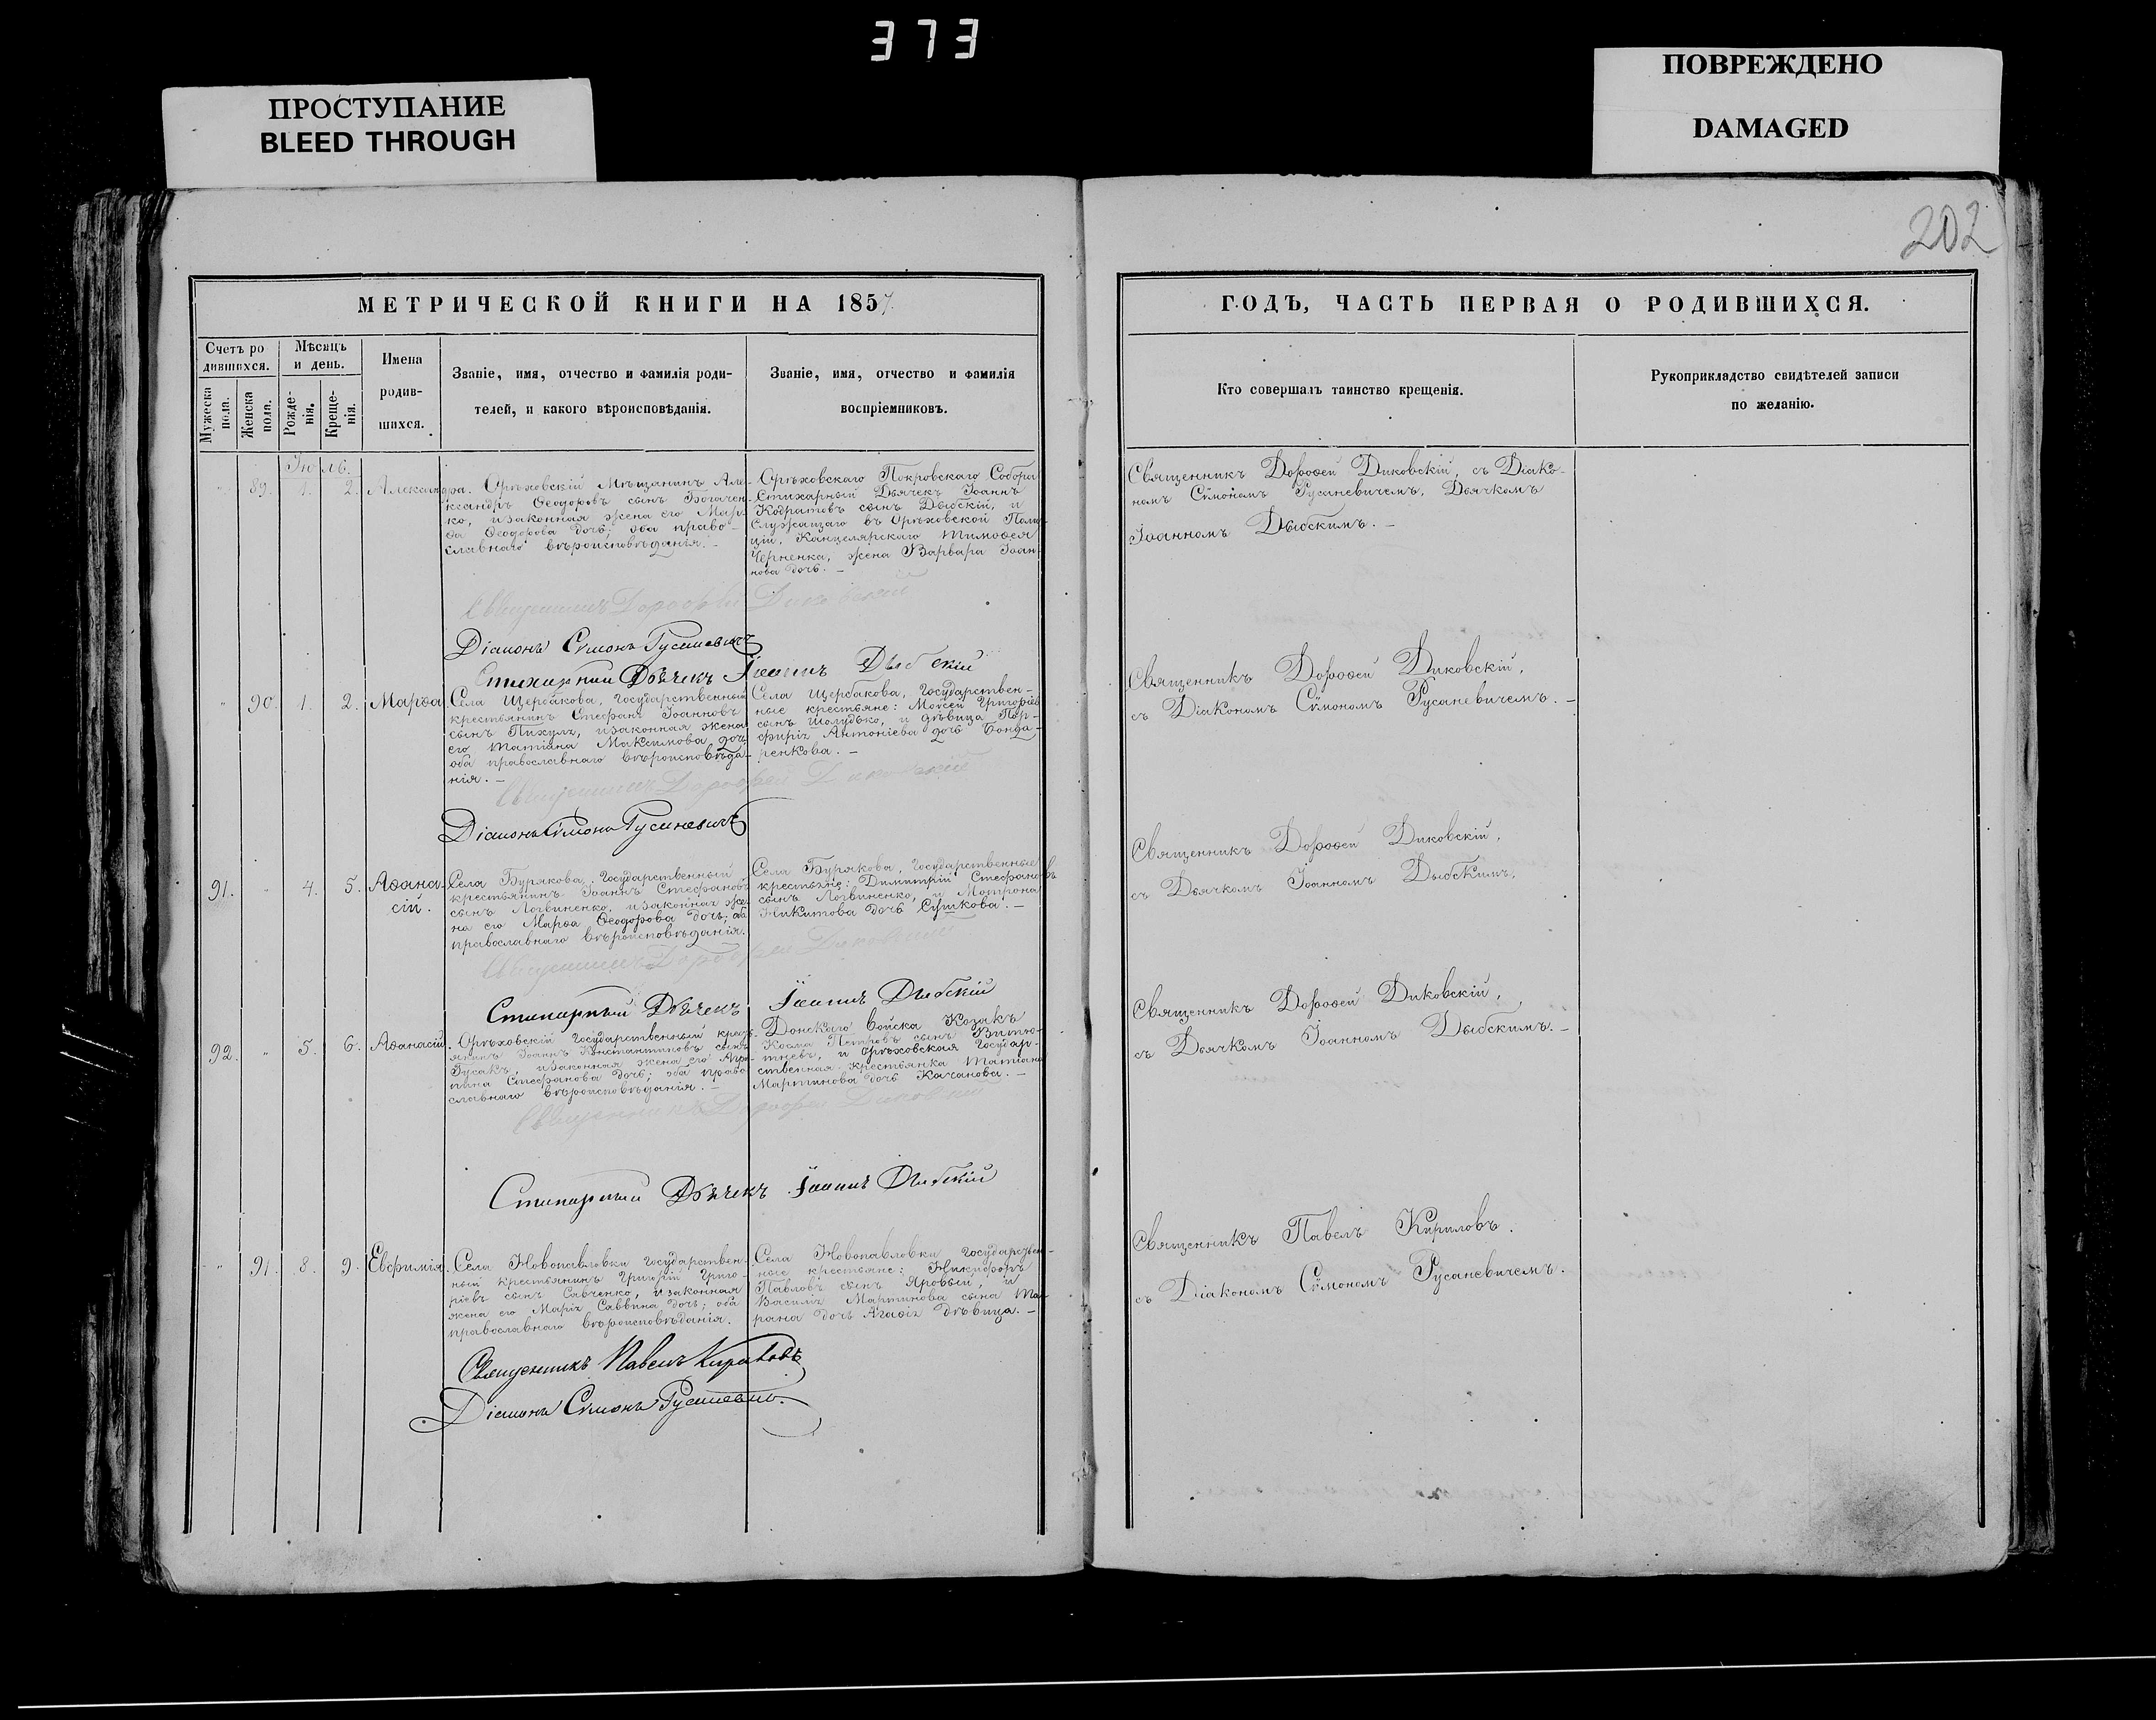 373
ПРОСТУПАНИЕ
BLEED THROUGH
ПОВРЕЖДЕНО
DAMAGED
202
МЕТРИЧЕСКОЙ КНИГИ НА 1857
Счетъ ро
дившихся.
Мужеска
пола.
Женска
пола.
Мѣсяцъ
и день.
Рожде-
нія.
Креще-
нія.
Имена
родив-
шихся.
Званіе, имя, отчество и фамилія роди-
телей, и какого вѣроисповѣданія.
Званіе, имя, отчество и фамилія
воспріемниковъ.
Июль.
89. 1. 2. Александра.
Орѣховскій Мѣщанинъ Але-
ксандръ Ѳеодоровъ сынъ Богачен-
ко, и законная жена его Мар-
ѳа Ѳеодорова дочь; оба право-
славнаго вѣроисповѣданія. –
Орѣховскаго Покровскаго Собора
Стихарный Дьячекъ Іоаннъ
Кодратовъ сынъ Дыбскій, и
Служащаго въ Орѣховской Поли-
ціи, Канцелярскаго Тимоѳея
Черненка, жена Варвара Іоан-
нова дочь. –
Священникъ Дорофей Диковскій
Діаконъ Сѵмонъ Русаневичъ
Стихарный Дьячекъ Іоаннъ Дыбскій
" 90. 1. 2. Марѳа
Села Щербакова, Государственный
крестьянинъ Стефанъ Іоанновъ
сынъ Пихуля, и законная жена
его Татіана Максимова дочь,
оба православнаго вѣроисповѣда-
нія. –
Села Щербакова, Государствен-
ные крестьяне: Моѵсей Григоріевъ
сынъ Шолудько, и дѣвица Пор-
фирія Антоніева дочь Бонда-
ренкова. –
Священникъ Дорофей Диковскій
Діаконъ Сѵмонъ Русаневичъ
91. " 4. 5. Аѳана-
сій.
Села Бурякова, Государственный
крестьянинъ Іоаннъ Стефановъ
сынъ Логвиненко, и законная же-
на его Марѳа Ѳеодорова дочь; оба
православнаго вѣроисповѣданія.
Села Бурякова, Государственные
крестьяне: Димитрій Стефановъ
сынъ Логвиненко, и Матрона
Никитова дочь Сушкова. –
Священникъ Дорофей Диковскій
Стихарный Дьячекъ Іоаннъ Дыбскій
92. " 5. 6. Аѳанасій.
Орѣховскій Государственный кресть-
янинъ Іоаннъ Константиновъ сынъ
Гусакъ, и законная жена его Агри-
пина Стефанова дочь; оба право-
славнаго вѣроисповѣданія. –
Донскаго Войска Козакъ
Косма Петровъ сынъ
и Орѣховская Государ-
ственная крестьянка Татіана
Мартинова дочь Качанова. –
Священникъ Дорофей Диковскій
Стихарный Дьячекъ Іоаннъ Дыбскій
" 91. 8. 9. Евфимія.
Села Новопавловки Государствен-
ный крестьянинъ Григорій Григо-
ріевъ сынъ Савченко, и законная
жена его Марія Саввина дочь; оба
православнаго вѣроисповѣданія.
Села Новопавловки Государствен-
ные крестьяне: Никифоръ
Павловъ сынъ Яровый, и
Василія Мартинова сына Та-
рана дочь Агаѳія дѣвица. –
Священникъ Павелъ Кириловъ
Діаконъ Сѵмонъ Русаневичъ.
ГОДЪ, ЧАСТЬ ПЕРВАЯ О РОДИВШИХСЯ.
Кто совершалъ таинство крещенія.
Рукоприкладство свидѣтелей записи
по желанію.
Священникъ Дороѳей Диковскій, съ Діако-
номъ Сѵмономъ Русаневичемъ, Дьячкомъ
Іоанномъ Дыбскимъ. –
Священникъ Дороѳей Диковскій,
съ Діакономъ Сѵмономъ Русаневичемъ. –
Священникъ Дороѳей Диковскій,
съ Дьячкомъ Іоанномъ Дыбскимъ.
Священникъ Дороѳей Диковскій,
съ Дьячкомъ Іоанномъ Дыбскимъ. –
Священникъ Павелъ Кириловъ.
съ Діакономъ Сѵмономъ Русаневичемъ.